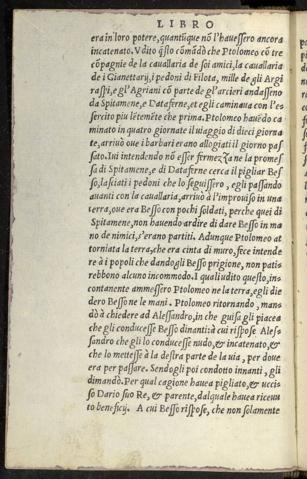 LIBRO
era in loro potere, quantũque nõ l'hauessero ancora
incatenato. Vdito q̃sto cõmãdò che Ptolomeo cõ tre
cõpagnie de la cauallaria de soi amici, la cauallaria
de i Gianettary, i pedoni di Filota, mille de gli Argi
raspi, e gl'Agriani cõ parte de gl'arcieri andasseno
da Spitamene, e Dataferne, et egli caminaua con l'es
sercito piu lẽtemẽte che prima. Ptolomeo hauẽdo ca
minato in quatro giornate il uiaggio di dieci giorna
te, arriuò oue i barbari erano allogiati il giorno pas
sato. Iui intendendo nõ esser firmezza ne la promes
sa di Spitamene, e di Dataferne cerca il pigliar Bes
so, lasciati i pedoni che lo seguissero, egli passando
auanti con la cauallaria, arriuò a l'improuiso in una
terra, oue era Besso con pochi soldati, perche quei di
Spitamene, non hauendo ardire di dare Besso in ma
no de nimici, s'erano partiti. Adunque Ptolomeo at
torniata la terra, che era cinta di muro, fece intende
re à i popoli che dando gli Besso prigione, non patis
rebbono alcuno incommodo. I quali udito questo, in
contanente ammessero Ptolomeo ne la terra, e gli die
dero Besso ne le mani. Ptolomeo ritornando, man
dò à chiedere ad Alessandro, in che guisa gli piacea
che gli conducesse Besso dinanti à cui rispose Ales
sandro che gli lo conducesse nudo, & incatenato, &
che lo mettesse à la destra parte de la uia, per doue
era per passare. Sendogli poi condotto innanti, gli
dimandò. Per qual cagione hauea pigliato, & ucci
so Dario suo Re, & parente, dal quale hauea riceuu
to beneficij. A cui Besso rispose, che non solamente